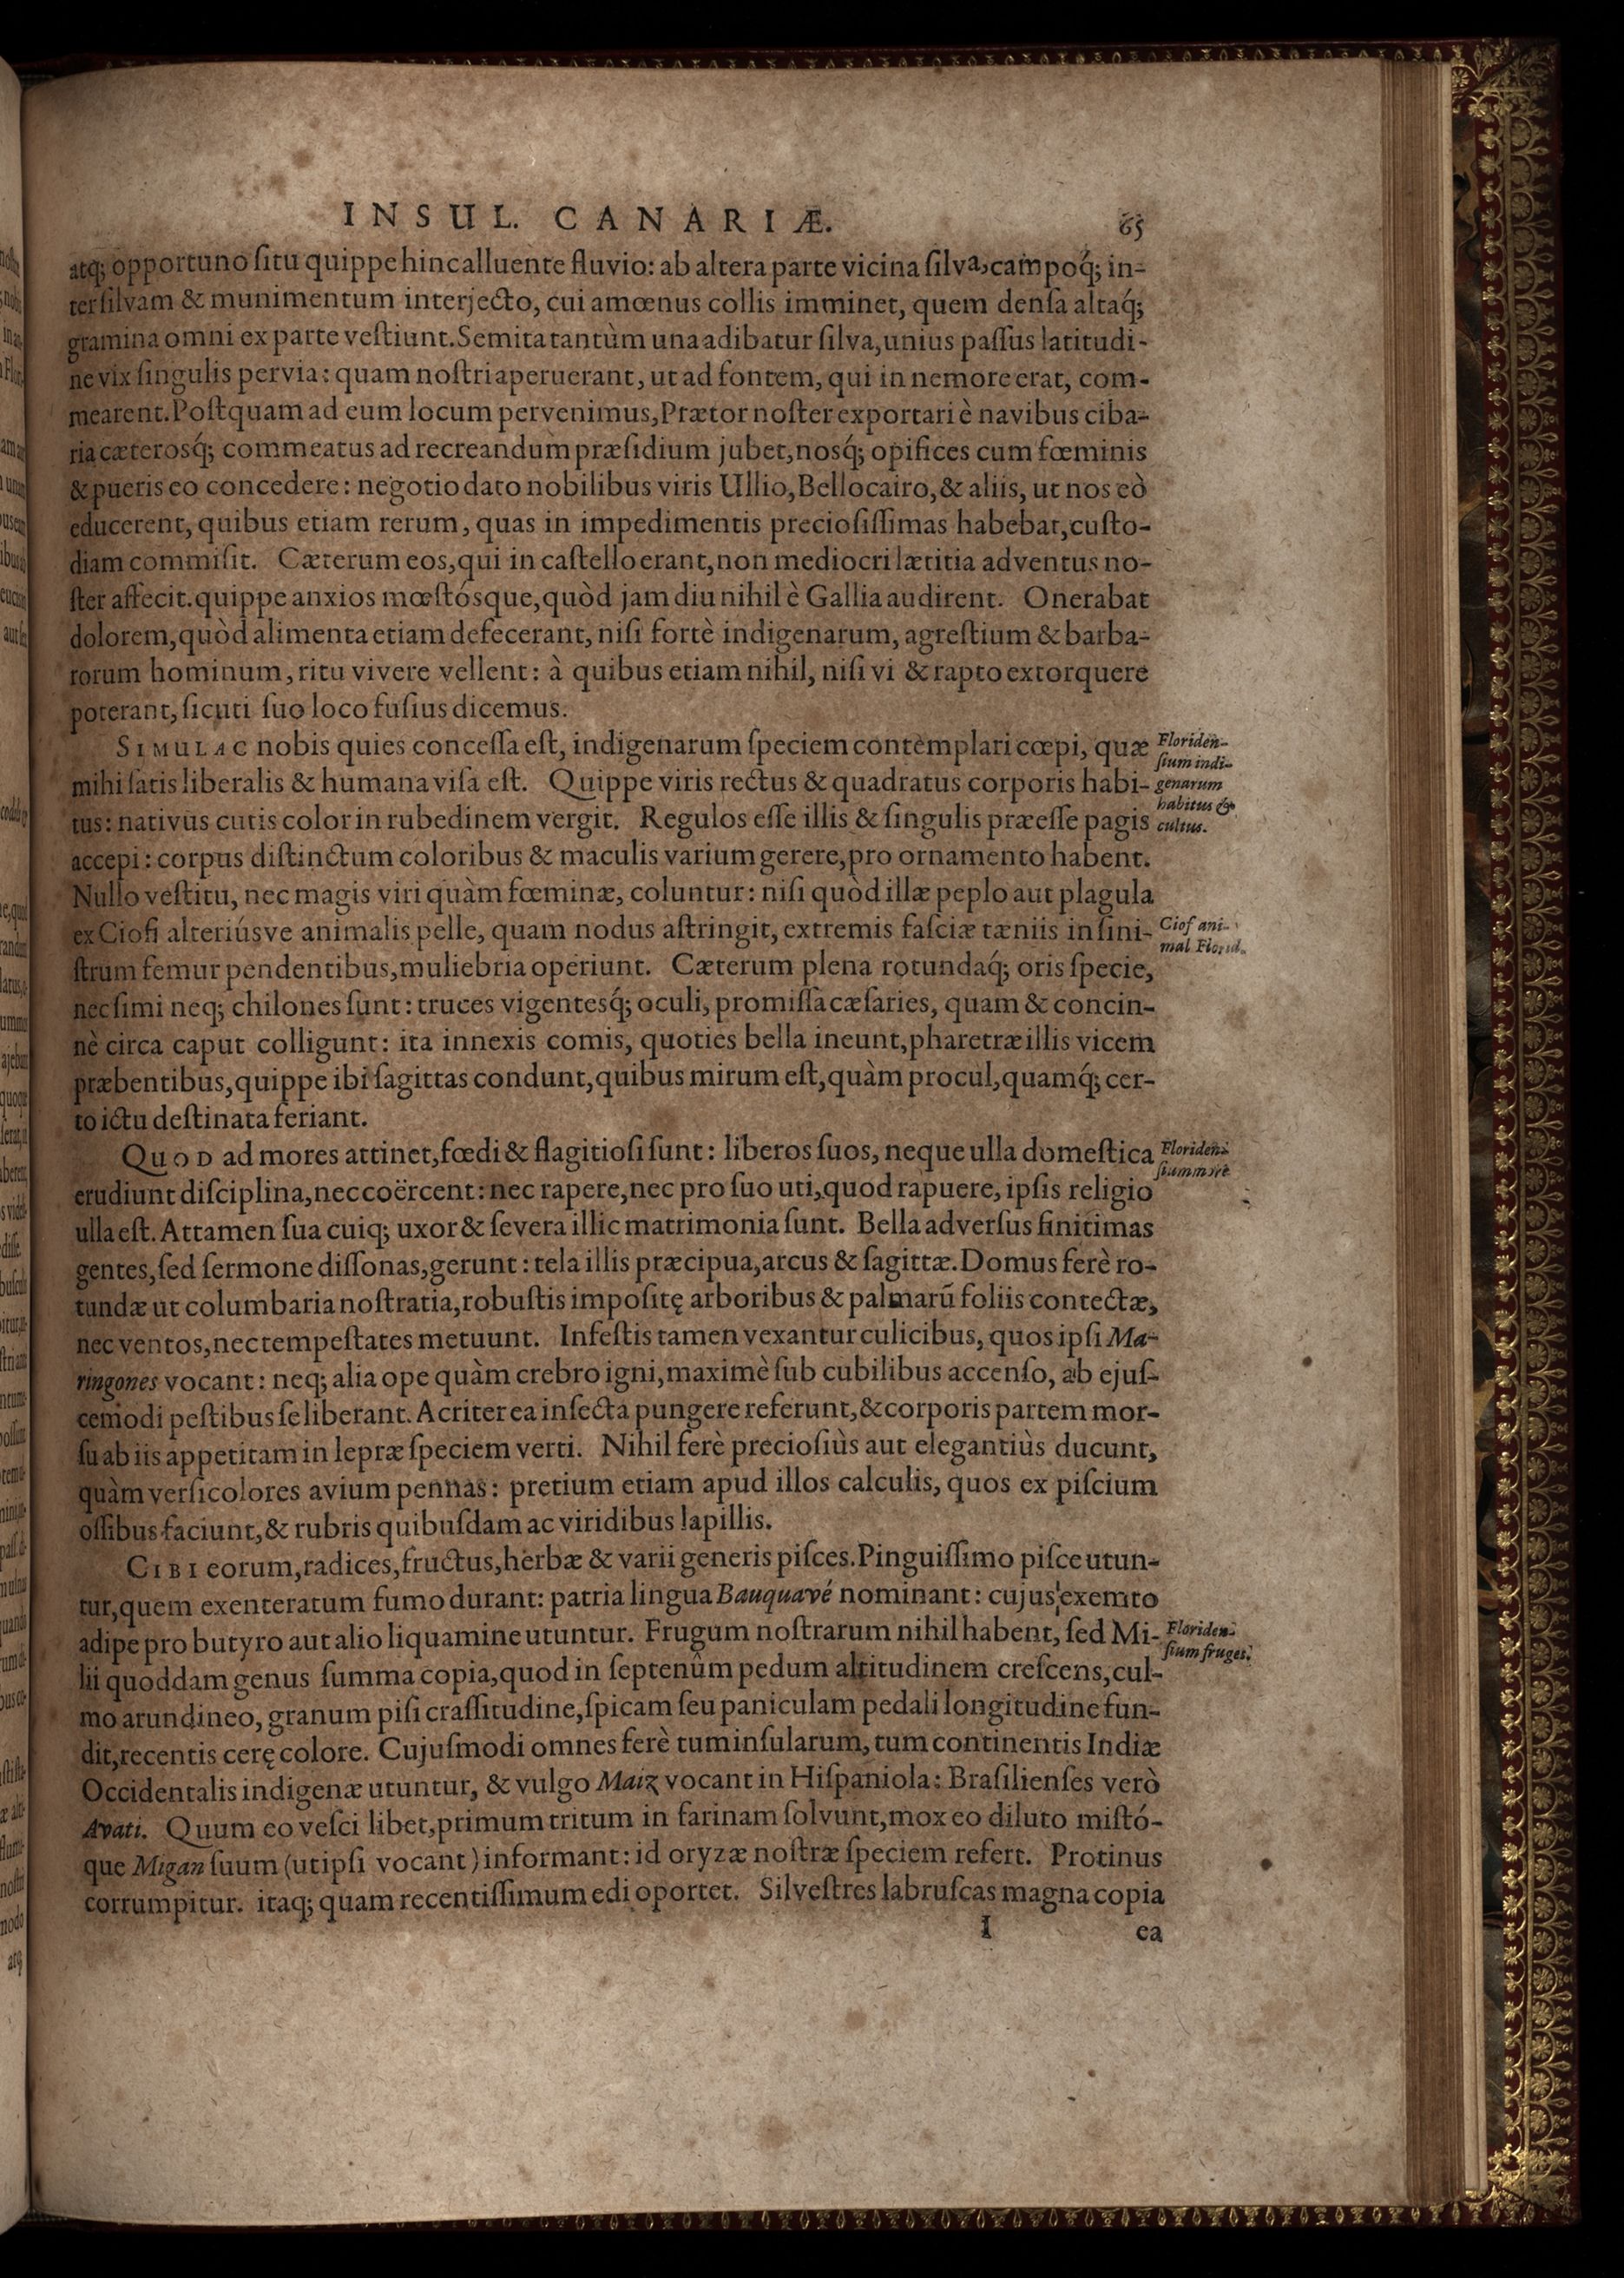 INSUL. CANARIÆ. 65
atq́; opportuno ſitu quippe hinc alluente fluvio: ab altera parte vicina ſilva, campoq́; in-
ter ſilvam & munimentum interjecto, cui amœnus collis imminet, quem denſa altaq́;
gramina omni ex parte veſtiunt. Semita tantùm una adibatur ſilva, unius paſſus latitudi-
ne vix ſingulis pervia: quam noſtri aperuerant, ut ad fontem, qui in nemore erat, com-
mearent. Poſtquam ad eum locum pervenimus, Prætor noſter exportari è navibus ciba-
ria cæterosq́; commeatus ad recreandum præſidium jubet, nosq́; opifices cum fœminis
& pueris eo concedere: negotio dato nobilibus viris Ullio, Bellocairo, & aliis, ut nos eò
educerent, quibus etiam rerum, quas in impedimentis precioſiſſimas habebat, cuſto-
diam commiſit. Cæterum eos, qui in caſtello erant, non mediocri lætitia adventus no-
ſter affecit. quippe anxios mœſtósque, quòd jam diu nihil è Gallia audirent. Onerabat
dolorem, quòd alimenta etiam defecerant, niſi fortè indigenarum, agreſtium & barba-
rorum hominum, ritu vivere vellent: à quibus etiam nihil, niſi vi & rapto extorquere
poterant, ſicuti ſuo loco fuſius dicemus.
SIMULAC nobis quies conceſſa eſt, indigenarum ſpeciem contemplari cœpi, quæ
mihi ſatis liberalis & humana viſa eſt. Quippe viris rectus & quadratus corporis habi-
tus: nativus cutis color in rubedinem vergit. Regulos eſſe illis & ſingulis præeſſe pagis
accepi: corpus diſtinctum coloribus & maculis varium gerere, pro ornamento habent.
Nullo veſtitu, nec magis viri quàm fœminæ, coluntur: niſi quòd illæ peplo aut plagula
ex Ciofi alteriúsve animalis pelle, quam nodus aſtringit, extremis faſciæ tæniis in ſini-
ſtrum femur pendentibus, muliebria operiunt. Cæterum plena rotundaq́; oris ſpecie,
nec ſimi neq; chilones ſunt: truces vigentesq́; oculi, promiſſa cæſaries, quam & concin-
nè circa caput colligunt: ita innexis comis, quoties bella ineunt, pharetræ illis vicem
præbentibus, quippe ibi ſagittas condunt, quibus mirum eſt, quàm procul, quamq́; cer-
to ictu deſtinata feriant.
QUOD ad mores attinet, fœdi & flagitioſi ſunt: liberos ſuos, neque ulla domeſtica
erudiunt diſciplina, nec coërcent: nec rapere, nec pro ſuo uti, quod rapuere, ipſis religio
ulla eſt. Attamen ſua cuiq; uxor & ſevera illic matrimonia ſunt. Bella adverſus finitimas
gentes, ſed ſermone diſſonas, gerunt: tela illis præcipua, arcus & ſagittæ. Domus ferè ro-
tundæ ut columbaria noſtratia, robuſtis impoſitę arboribus & palmarū foliis contectæ,
nec ventos, nec tempeſtates metuunt. Infeſtis tamen vexantur culicibus, quos ipſi Ma-
ringones vocant: neq; alia ope quàm crebro igni, maximè ſub cubilibus accenſo, ab ejuſ-
cemodi peſtibus ſe liberant. Acriter ea inſecta pungere referunt, & corporis partem mor-
ſu ab iis appetitam in lepræ ſpeciem verti. Nihil ferè precioſiùs aut elegantiùs ducunt,
quàm verſicolores avium pennas: pretium etiam apud illos calculis, quos ex piſcium
oſſibus faciunt, & rubris quibuſdam ac viridibus lapillis.
CIBI eorum, radices, fructus, herbæ & varii generis piſces. Pinguiſſimo piſce utun-
tur, quem exenteratum fumo durant: patria lingua Bauquavé nominant: cujus exemto
adipe pro butyro aut alio liquamine utuntur. Frugum noſtrarum nihil habent, ſed Mi-
lii quoddam genus ſumma copia, quod in ſeptenûm pedum altitudinem creſcens, cul-
mo arundineo, granum piſi craſſitudine, ſpicam ſeu paniculam pedali longitudine fun-
dit, recentis cerę colore. Cujuſmodi omnes ferè tum inſularum, tum continentis Indiæ
Occidentalis indigenæ utuntur, & vulgo Maiz vocant in Hiſpaniola: Braſilienſes verò
Avati. Quum eo veſci libet, primum tritum in farinam ſolvunt, mox eo diluto miſtó-
que Migan ſuum (ut ipſi vocant) informant: id oryzæ noſtræ ſpeciem refert. Protinus
corrumpitur. itaq; quam recentiſſimum edi oportet. Silveſtres labruſcas magna copia
I ea
Floriden-
ſium indi-
genarum
habitus &
cultus.
Ciof ani-
mal Florid.
Floriden-
ſium mores
Floriden-
ſium fruges.